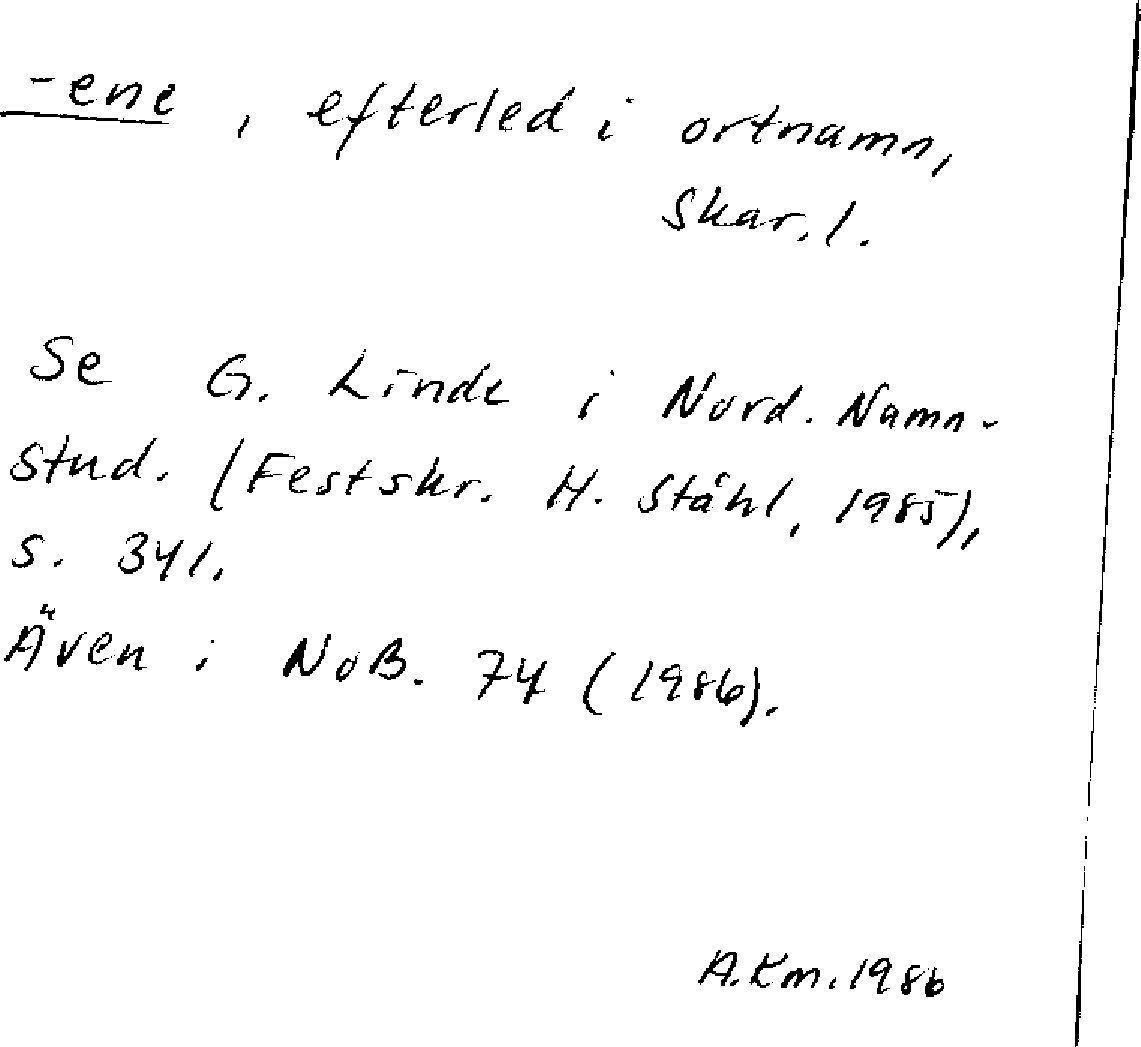 -ene, efterled i ortnamn,
Skar. l.
Se G. Linde i Nord. Namn-
stud. (Festskr. H. Ståhl, 1985),
s. 341.
Även i NoB. 74 (1986).
A.Km.1986